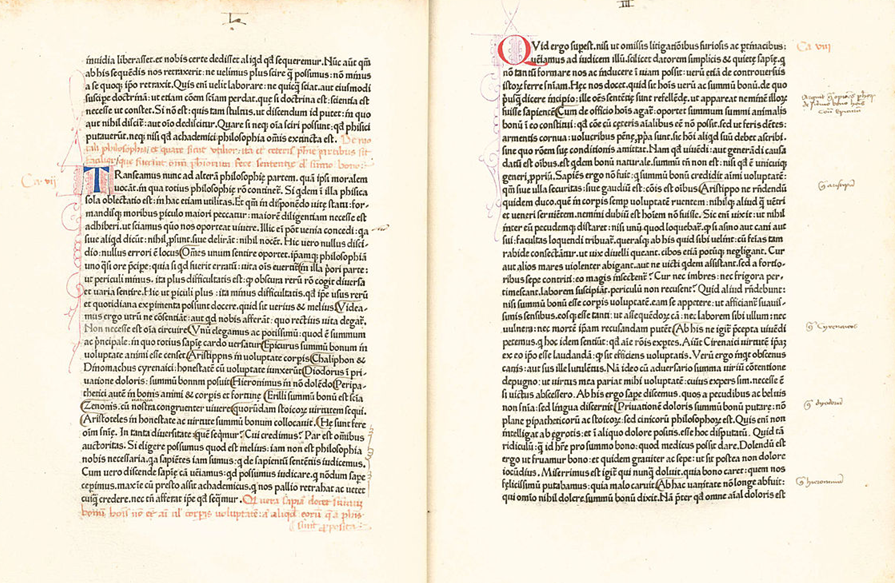 inuidia liberasset. et nobis certe dedisset aliqd qd sequeremur. Nũc aut qm
ab his sequẽdis nos retraxerit: ne velimus plus scire q̃ possumus: nõ minus
a se quoqȝ ipõ retraxit. Quis eni velit laborare: ne quicq̃ sciat. aut eiusmodi
suscipe doctrinã: ut etiam cõm sciam perdat. que si doctrina est: scientia est
necesse ut constet. Si nõ est: quis tam stultus. ut discendum id putet: in quo
aut nihil discit: aut etiã dediscit. Quare si neqȝ oĩa sciri possunt: qd phisici
putauerũt. neqȝ nihil qd achademici philosophia omĩs extincta est.
Ca. vii
TRanseamus nunc ad alterã philosophie partem. quã ipsi moralem
uocãt. in qua totius philosophie rõ continet. Si qdem i illa phisica
sola oblectatio est: in hac etiam utilitas. Et qm in disponẽdo uite statu: for-
mandisqȝ moribus piculo maiori peccatur: maiorẽ diligentiam necesse est
adhiberi. ut sciamus quo nos oporteat uiuere. Illic eni põt venia concedi: qa
siue aliqd dicũt: nihil psunt. siue delirãt: nihil nocẽt. Hic vero nullus dissi-
dio: nullus errori ẽ locus. Omẽs unum sentire oportet. ipamqȝ philosophiã
uno qsi ore pcipe: quia si qd fuerit erratũ: uita oĩs euertit. in illa pori parte:
ut periculi minus. ita plus difficultatis est: qȝ obscura rerũ rõ cogit diuersa
et varia sentire. Hic ut piculi plus: ita minus difficultatis. qd ipe usus rerũ
et quotidiana expimenta possunt docere. quid sit verius & melius. Videa-
mus ergo utrũ ne cõsentiãt: aut qd nobis afferãt: quo rectius vita degat.
Non necesse est oĩa circuire. Vnũ elegamus ac potissimũ: quod ẽ summũ
ac pncipale: in quo totius sapie cardo versatur. Epicurus summũ bonum in
voluptate animi esse censet. Aristippus in voluptate corpis. Chaliphon &
Dinomachus cyrenaici: honestatẽ cũ voluptate iunxerũt. Diodorus i pri-
uatione doloris: summũ bonum posuit. Hieronimus in nõ dolẽdo. Peripa-
thetici autẽ in bonis animi & corpis et fortune. Erilli summũ bonũ est scia.
Zenonis. cũ natura congruenter viuere. quorũdam stoicoꝝ virtutem sequi.
Aristoteles in honestate ac virtute summũ bonum collocauit. He sunt fere
oĩm snie. In tanta diuersitate que seqmur? Cui credimus? Par est omĩbus
auctoritas. Si eligere possumus quod est melius: iam non est philosophia
nobis necessaria. qa sapiẽtes iam sumus: q de sapiẽtũ sentẽtiis iudicemus.
Cum vero discende sapie cã vẽiamus: qd possumus iudicare. q nõdum sape
cepimus. maxie cũ presto assit achademicus. q nos pallio retrahat ac vetet
cuiqȝ credere. nec tñ afferat ipe qd seqmur.
III
QVid ergo supest. nisi ut omissis litigatiõibus furiosis ac ptinacibus:
veniamus ad iudicem illũ. silicet datorem simplicis & quiete sapie. q
nõ tantũ formare nos ac inducere i uiam possit: verũ etiã de controuersiis
istoꝝ ferre sniam. Hec nos docet. quid sit hois uerũ ac summũ bonũ. de quo
pusqȝ dicere incipio: ille oẽs sentẽtie sunt refellẽde. ut appareat neminẽ illoꝝ
fuisse sapientẽ. Cum de officio hois agat: oportet summum summi animalis
bonũ i eo constitui: qd cõe cũ ceteris aĩalibus eẽ nõ possit. sed ut feris dẽtes:
armentis cornua: volucribus pẽne ppa sunt. sic hoi aliqd suũ debet ascribi.
sine quo rõem sue conditionis amittat. Nam qd viuẽdi: aut generãdi causa
datũ est oĩbus. est qdem bonũ naturale. summũ tñ non est: nisi qd ẽ unicuiqȝ
generi ppriũ. Sapiẽs ergo nõ fuit: q summũ bonũ credidit aĩmi voluptatẽ:
qm siue illa securitas: siue gaudiũ est: cõis est oĩbus. Aristippo ne rñdendũ
quidem duco. quẽ in corpis semp voluptatẽ ruentem: nihilqȝ aliud q̃ vẽtri
et veneri seruiẽtem. nemini dubiũ est hoiem nõ fuisse. Sic eni vixit: ut nihil
inter eũ pecudemqȝ distaret: nisi unũ quod loquebat. qd si asino aut cani aut
sui: facultas loquendi tribuat. querasqȝ ab his quid sibi velint: cũ feias tam
rabide consectãtur. ut vix diuelli queant. cibos etiã potũqȝ negligant. Cur
aut alios mares violenter abigant. aut ne victi qdem assistant. sed a fortio-
ribus sepe contriti: eo magis insectent? Cur nec imbres: nec frigora per-
timescant. laborem suscipiãt. periculũ non recusent? Quid aliud rñdebunt:
nisi summũ bonũ esse corpis voluptatẽ. eam se appetere: ut afficiant̃ suauis-
simis sensibus. eosqȝ esse tanti: ut assequẽdoꝝ cã: nec laborem sibi ullum: nec
vulnera: nec mortẽ ipam recusandam putẽt. Ab his ne igit̃ pcepta viuẽdi
petemus. q hoc idem sentiũt: qd aie rõis exptes. Aiũt Cirenaici virtutẽ ipaȝ
ex eo ipo esse laudandã: q sit efficiens voluptatis. Verũ ergo inqt obscenus
canis: aut sus ille lutulẽtus. Nã ideo cũ aduersario summa viriũ cõtentione
depugno: ut virtus mea pariat mihi voluptatẽ: cuius expers sim. necesse ẽ
si victus abscessero. Ab his ergo sape discemus. quos a pecudibus ac beluis
non snia. sed lingua discernit. Priuationẽ doloris summũ bonũ putare: nõ
plane pipatheticoꝝ ac stoicoꝝ: sed clinicorũ philosophoꝝ est. Quis eni non
intelligat ab egrotis: et i aliquo dolore positis. esse hoc disputatũ. Quid tã
ridiculũ: q̃ id hre pro summo bono: quod medicus possit dare. Dolendũ est
ergo ut fruamur bono: et quidem grauiter ac sepe: ut sit postea non dolere
iocũdius. Miserrimus est igit̃ qui nunqȝ doluit. quia bono caret: quem nos
felicissimũ putabamus: quia malo caruit. Ab hac vanitate nõ longe abfuit:
qui omĩo nihil dolere. summũ bonũ dixit. Nã pter qd omne aial doloris est
Ca viii